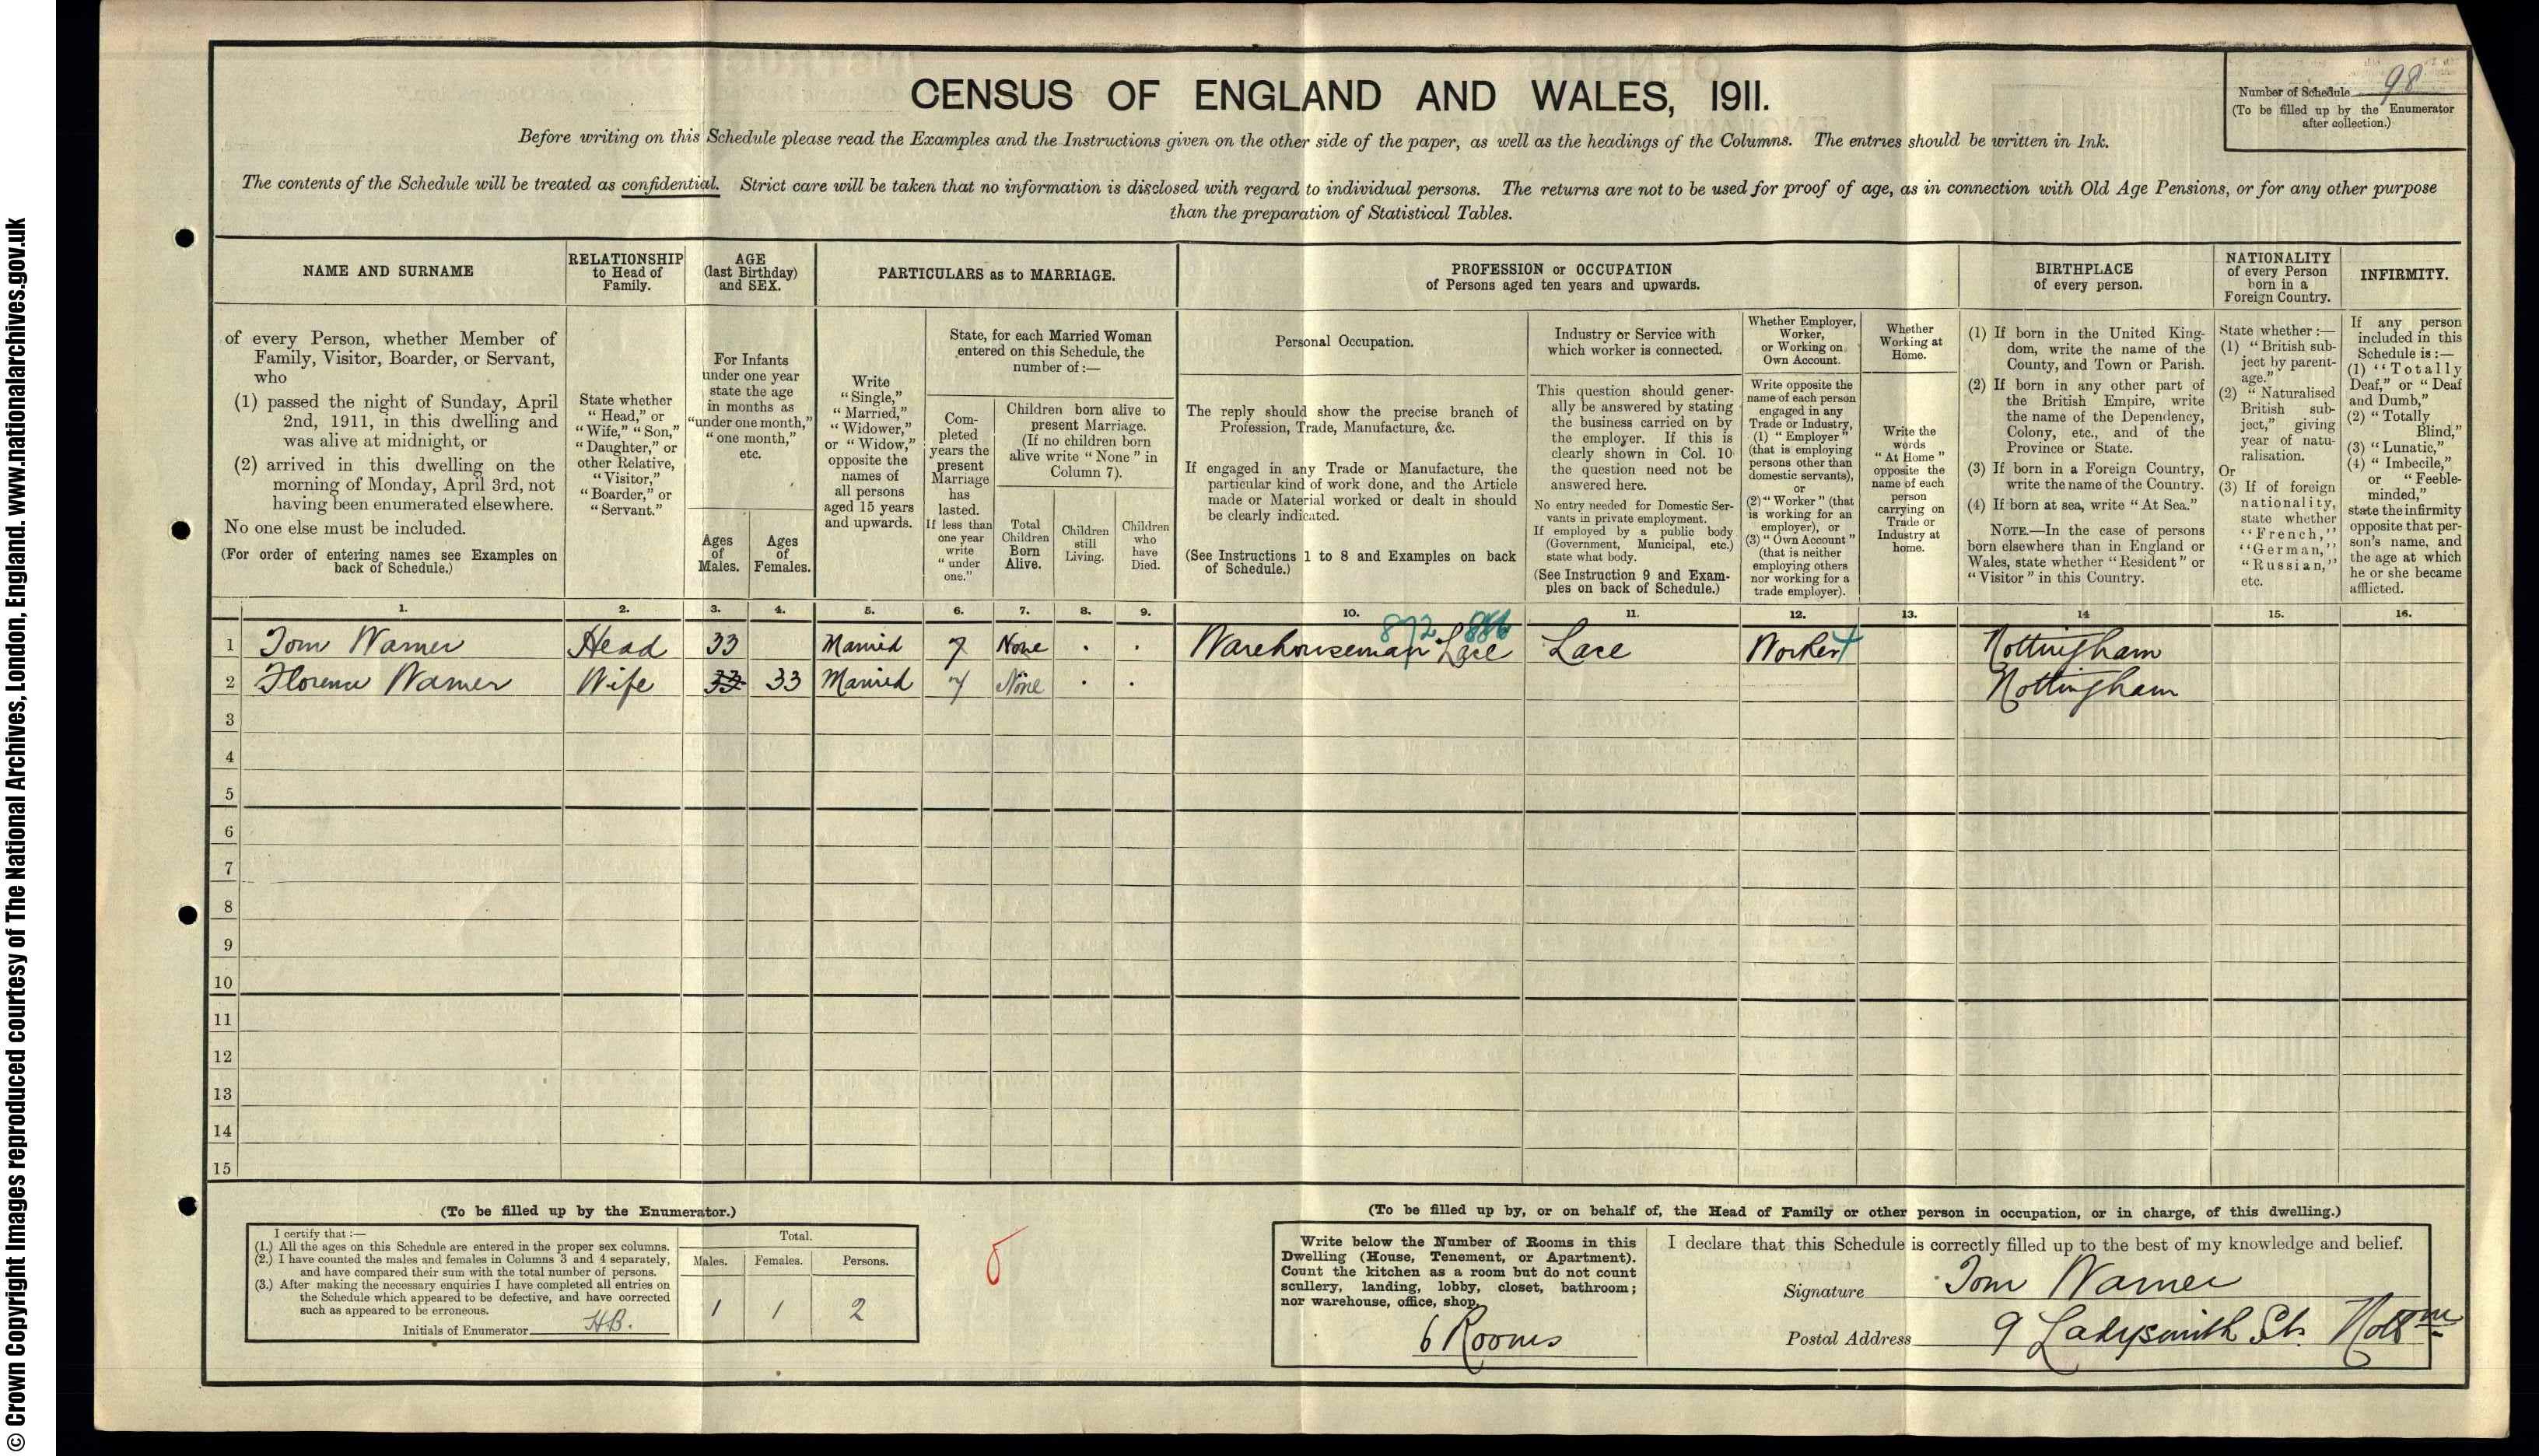 © Crown Copyright Images reproduced courtesy of The National Archives, London, England. www.nationalarchives.gov.uk
CENSUS OF ENGLAND AND WALES, 1911.
Number of Schedule 98
(To be filled up by the Enumerator
after collection.)
Before writing on this Schedule please read the Examples and the Instructions given on the other side of the paper, as well as the headings of the Columns. The entries should be written in Ink.
The contents of the Schedule will be treated as confidential. Strict care will be taken that no information is disclosed with regard to individual persons. The returns are not to be used for proof of age, as in connection with Old Age Pensions, or for any other purpose
than the preparation of Statistical Tables.
NAME AND SURNAME
of every Person, whether Member of
Family, Visitor, Boarder, or Servant,
who
(1) passed the night of Sunday, April
2nd, 1911, in this dwelling and
was alive at midnight, or
(2) arrived in this dwelling on the
morning of Monday, April 3rd, not
having been enumerated elsewhere.
No one else must be included.
(For order of entering names see Examples on
back of Schedule.)
RELATIONSHIP
to Head of
Family.
State whether
"Head," or
"Wife," "Son,"
"Daughter," or
other Relative,
"Visitor,"
"Boarder," or
"Servant."
AGE
(last Birthday)
and SEX.
For Infants
under one year
state the age
in months as
"under one month,"
"one month,"
etc.
Ages
of
Males.
Ages
of
Females.
PARTICULARS as to MARRIAGE.
Write
"Single,"
"Married,"
"Widower,"
or "Widow,"
opposite the
names of
all persons
aged 15 years
and upwards.
State, for each Married Woman
entered on this Schedule, the
number of :—
Com-
pleted
years the
present
Marriage
has
lasted.
If less than
one year
write
"under
one."
Children born alive to
present Marriage.
(If no children born
alive write "None" in
Column 7).
Total
Children
Born
Alive.
Children
still
Living.
Children
who
have
Died.
PROFESSION or OCCUPATION
of Persons aged ten years and upwards.
Personal Occupation.
The reply should show the precise branch of
Profession, Trade, Manufacture, &c.
If engaged in any Trade or Manufacture, the
particular kind of work done, and the Article
made or Material worked or dealt in should
be clearly indicated.
(See Instructions 1 to 8 and Examples on back
of Schedule.)
Industry or Service with
which worker is connected.
This question should gener-
ally be answered by stating
the business carried on by
the employer. If this is
clearly shown in Col. 10
the question need not be
answered here.
No entry needed for Domestic Ser-
vants in private employment.
If employed by a public body
(Government, Municipal, etc.)
state what body.
(See Instruction 9 and Exam-
ples on back of Schedule.)
Whether Employer,
Worker,
or Working on
Own Account.
Write opposite the
name of each person
engaged in any
Trade or Industry,
(1) "Employer"
(that is employing
persons other than
domestic servants),
or
(2) "Worker" (that
is working for an
employer), or
(3) "Own Account"
(that is neither
employing others
nor working for a
trade employer).
Whether
Working at
Home.
Write the
words
"At Home"
opposite the
name of each
person
carrying on
Trade or
Industry at
home.
BIRTHPLACE
of every person.
(1) If born in the United King-
dom, write the name of the
County, and Town or Parish.
(2) If born in any other part of
the British Empire, write
the name of the Dependency,
Colony, etc., and of the
Province or State.
(3) If born in a Foreign Country,
write the name of the Country.
(4) If born at sea, write "At Sea."
NOTE.—In the case of persons
born elsewhere than in England or
Wales, state whether "Resident" or
"Visitor" in this Country.
NATIONALITY
of every Person
born in a
Foreign Country.
State whether :—
(1) "British sub-
ject by parent-
age."
(2) "Naturalised
British sub-
ject," giving
year of natu-
ralisation.
Or
(3) If of foreign
nationality,
state whether
"French,"
"German,"
"Russian,"
etc.
INFIRMITY.
If any person
included in this
Schedule is :—
(1) "Totally
Deaf," or "Deaf
and Dumb,"
(2) "Totally
Blind,"
(3) "Lunatic,"
(4) "Imbecile,"
or "Feeble-
minded,"
state the infirmity
opposite that per-
son's name, and
the age at which
he or she became
afflicted.
1. 2. 3. 4. 5. 6. 7. 8. 9. 10. 11. 12. 13. 14 15. 16.
872
1 Tom Warner Head 33 Married 7 None Warehouseman Lace Lace Worker Nottingham
2 Florence Warner Wife 33 33 Married 7 None Nottingham
3
4
5
6
7
8
9
10
11
12
13
14
15
(To be filled up by the Enumerator.)
I certify that :—
(1.) All the ages on this Schedule are entered in the proper sex columns.
(2.) I have counted the males and females in Columns 3 and 4 separately,
and have compared their sum with the total number of persons.
(3.) After making the necessary enquiries I have completed all entries on
the Schedule which appeared to be defective, and have corrected
such as appeared to be erroneous.
Initials of Enumerator HB.
Total.
Males. Females. Persons.
1 1 2
(To be filled up by, or on behalf of, the Head of Family or other person in occupation, or in charge, of this dwelling.)
Write below the Number of Rooms in this
Dwelling (House, Tenement, or Apartment).
Count the kitchen as a room but do not count
scullery, landing, lobby, closet, bathroom;
nor warehouse, office, shop.
6 Rooms
I declare that this Schedule is correctly filled up to the best of my knowledge and belief.
Signature Tom Warner
Postal Address 9 Ladysmith St. Nottm